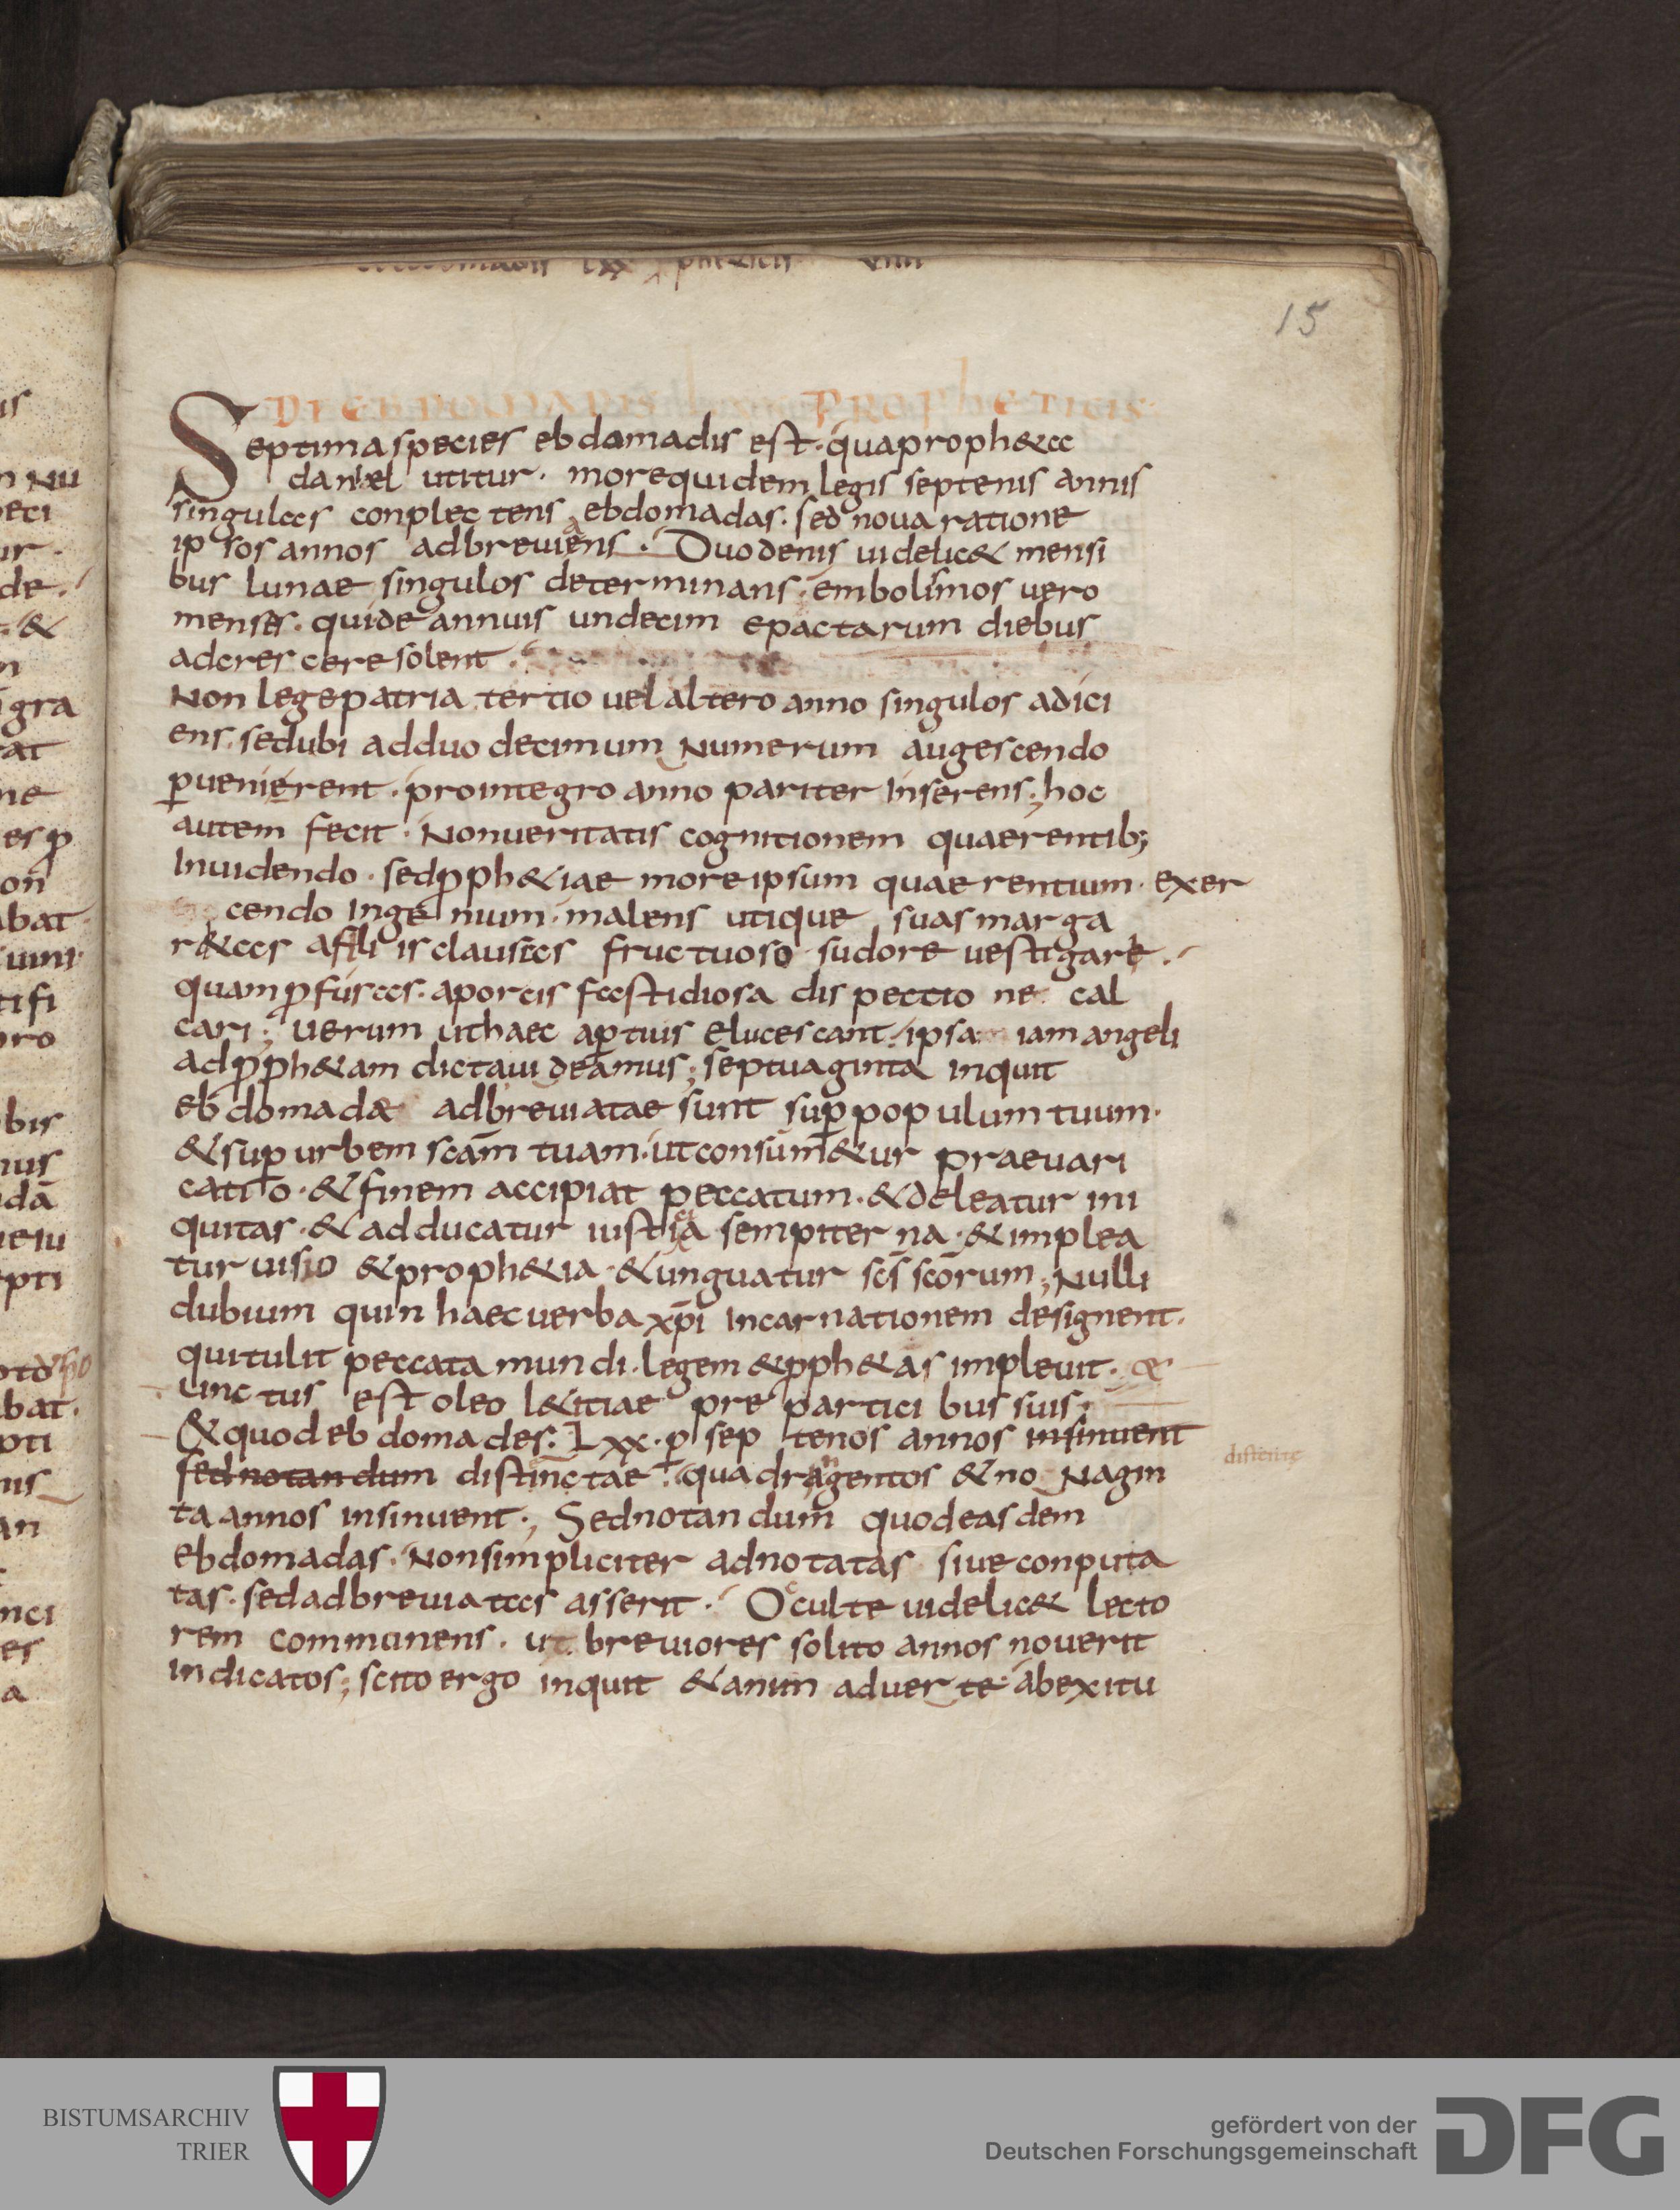 15
DE EBDOMADIS PROPHETICIS
Septima species ebdomadis est· qua proph&a
daniel utitur· more quidem legis septenis annis
singulas conplectens ebdomadas· sed noua ratione
ipsos annos adbreuians· Duodenis uidelic& mensi
bus lunae singulos determinans· embolismos uero
menses· qui de annuis undecim epactarum diebus
adcrescere solent·
Non lege patria tertio uel altero anno singulos adici
ens· sed ubi ad duodecimum Numerum augescendo
ꝑuenierent· pro integro anno pariter Inserens; hoc
autem fecit· Non ueritatis cognitionem quaerentib;
Inuidendo· sed ꝓph&iae more ipsum quaerentium· exer
cendo Ingenium· malens utique suas marga
r&as a filiis clausas fructuoso sudore uestigare·
quam ꝓfusas· a porcis fastidiosa dispectione cal
cari; uerum ut haec aꝑtius elucescant· ipsa iam angeli
ad ꝓph&am dicta uideamus; septuaginta inquit
ebdomadae adbreuiatae sunt suꝑ populum tuum·
& suꝑ urbem scām tuam· ut consum&ur praeuari
catio· & finem accipiat peccatum· & deleatur ini
quitas· & adducatur iustia sempiterna· & implea
tur uisio & proph&ia· & unguatur scs̄ scōrum; Nulli
dubium quin haec uerba xp̄i Incarnationem designent·
qui tulit peccata mundi· legem & ꝓph&as impleuit· &
unctus est oleo l&itiae pre participibus suis;
& quod ebdomades· Lxx· ꝑ septenos annos insinuent
sed notandum distinctae· quadragentos & no Nagin
ta annos insinuent·; Sed notandum quod easdem
ebdomadas· Non simpliciter adnotatas siue conputa
tas· sed adbreuiatas asserit· Occulte uidelic& lecto
rem commonens· ut breuiores solito annos nouerit
indicatos; scito ergo inquit & anim aduerte· ab exitu
BISTUMSARCHIV
TRIER
gefördert von der
Deutschen Forschungsgemeinschaft
DFG